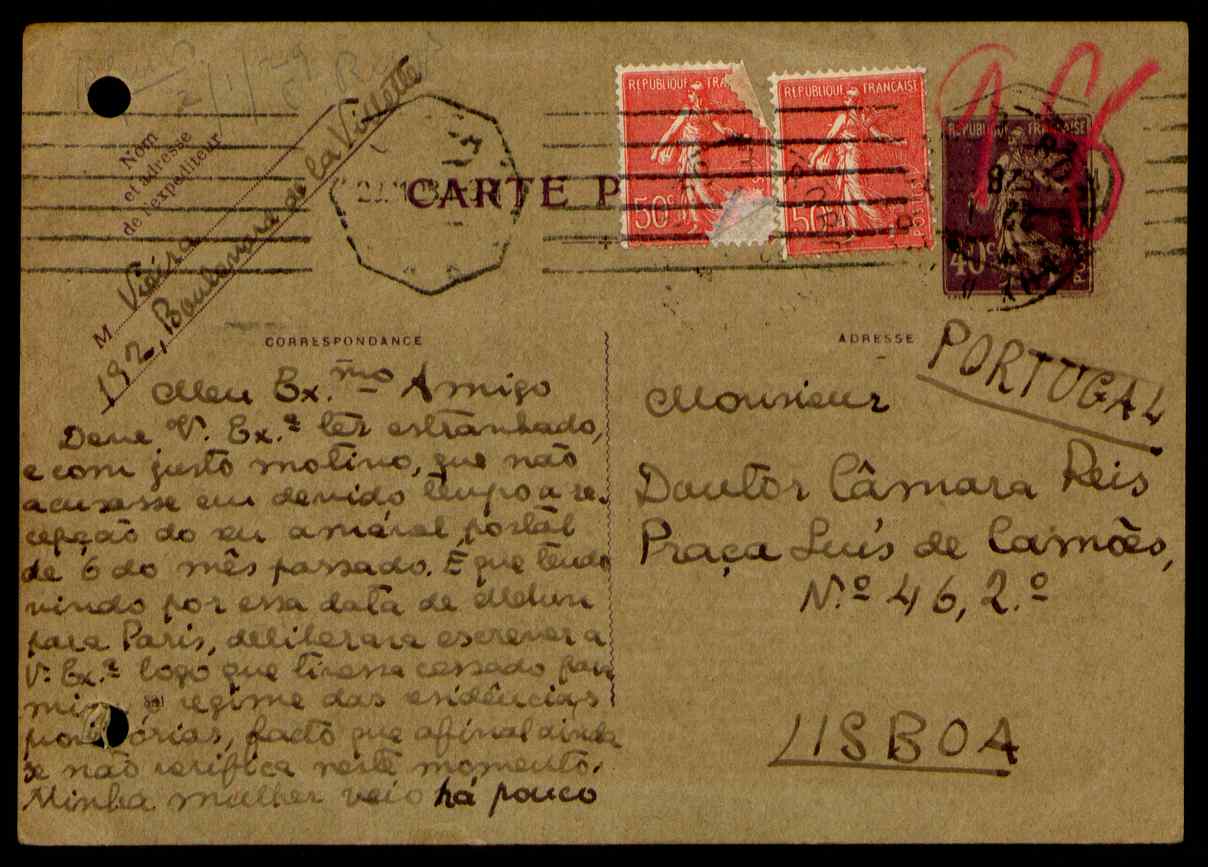 Nom
et adresse
de l'expéditeur
M Vieira
192, Boulevard de la Villette
CARTE P
REPUBLIQUE FRA
50c
REPUBLIQUE FRANÇAISE
50c
POSTES
REPUBLIQUE FRANÇAISE
40c
CORRESPONDANCE
Meu Ex.mo Amigo
Deve V. Ex.ª ter estranhado,
e com justo motivo, que não
acusasse em devido tempo a re-
cepção do seu amável postal
de 6 do mês passado. É que tendo
vindo por essa data de Melun
para Paris, deliberara escrever a
V. Ex.ª logo que tivesse cessado para
mim o regime das residências
provisórias, facto que afinal ainda
se não verifica neste momento.
Minha mulher veio há pouco
ADRESSE
PORTUGAL
Monsieur
Doutor Câmara Reis
Praça Luís de Camões,
N.º 46, 2.º
LISBOA